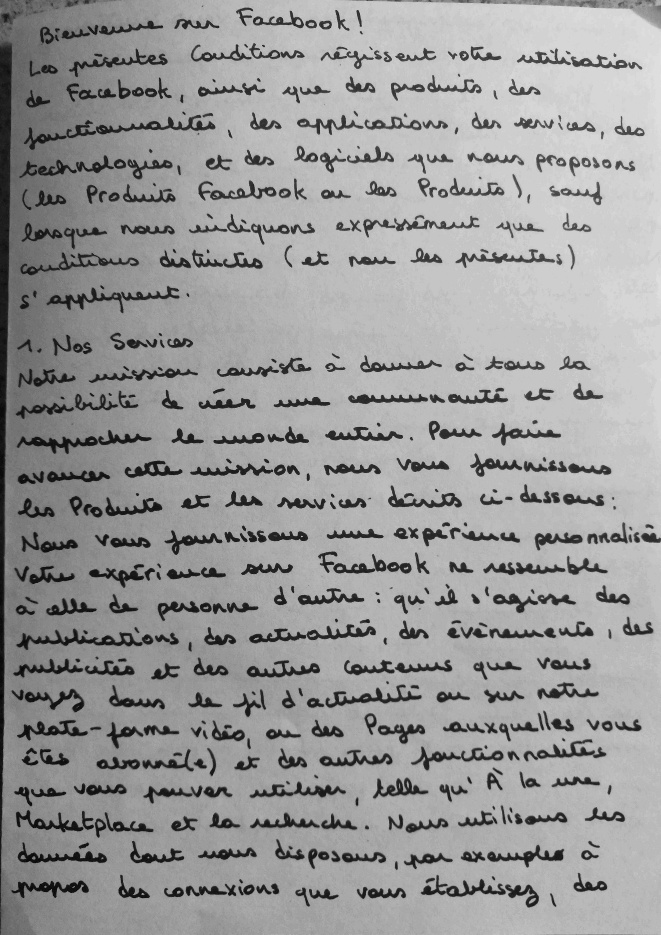 Bienvenue sur Facebook!
Les présentes Conditions régissent votre utilisation
de Facebook, ainsi que des produits, des
fonctionnalités, des applications, des services, des
technologies, et des logiciels que nous proposons
(les Produits Facebook ou les Produits), sauf
lorsque nous indiquons expressément que des
conditions distinctes (et non les présentes)
s'appliquent.
1. Nos Services
Notre mission consiste à donner à tous la
possibilité de créer une communauté et de
rapprocher le monde entier. Pour faire
avancer cette mission, nous vous fournissons
les Produits et les services décrits ci-dessous:
Nous vous fournissons une expérience personnalisée
Votre expérience sur Facebook ne ressemble
à celle de personne d'autre: qu'il s'agisse des
publications, des actualités, des évènements, des
publicités et des autres contenus que vous
voyez dans le fil d'actualité ou sur notre
plate-forme vidéo, ou des Pages auxquelles vous
êtes abonné(e) et des autres fonctionnalités
que vous pouvez utiliser, telle qu'À la une,
Marketplace et la recherche. Nous utilisons les
données dont nous disposons, par exemple à
propos des connexions que vous établissez, des